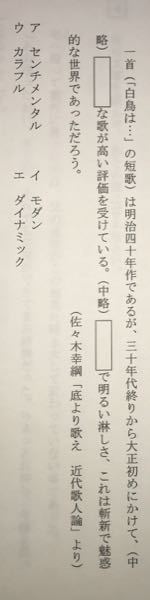 一首(「白鳥は…」の短歌)は明治四十年作であるが、三十年代終りから大正初めにかけて、(中
略)　　　な歌が高い評価を受けている。(中略)　　　で明るい淋しさ、これは斬新で魅惑
的な世界であっただろう。
(佐々木幸綱「底より歌え　近代歌人論」より)
ア　センチメンタル　　イ　モダン
ウ　カラフル　　エ　ダイナミック